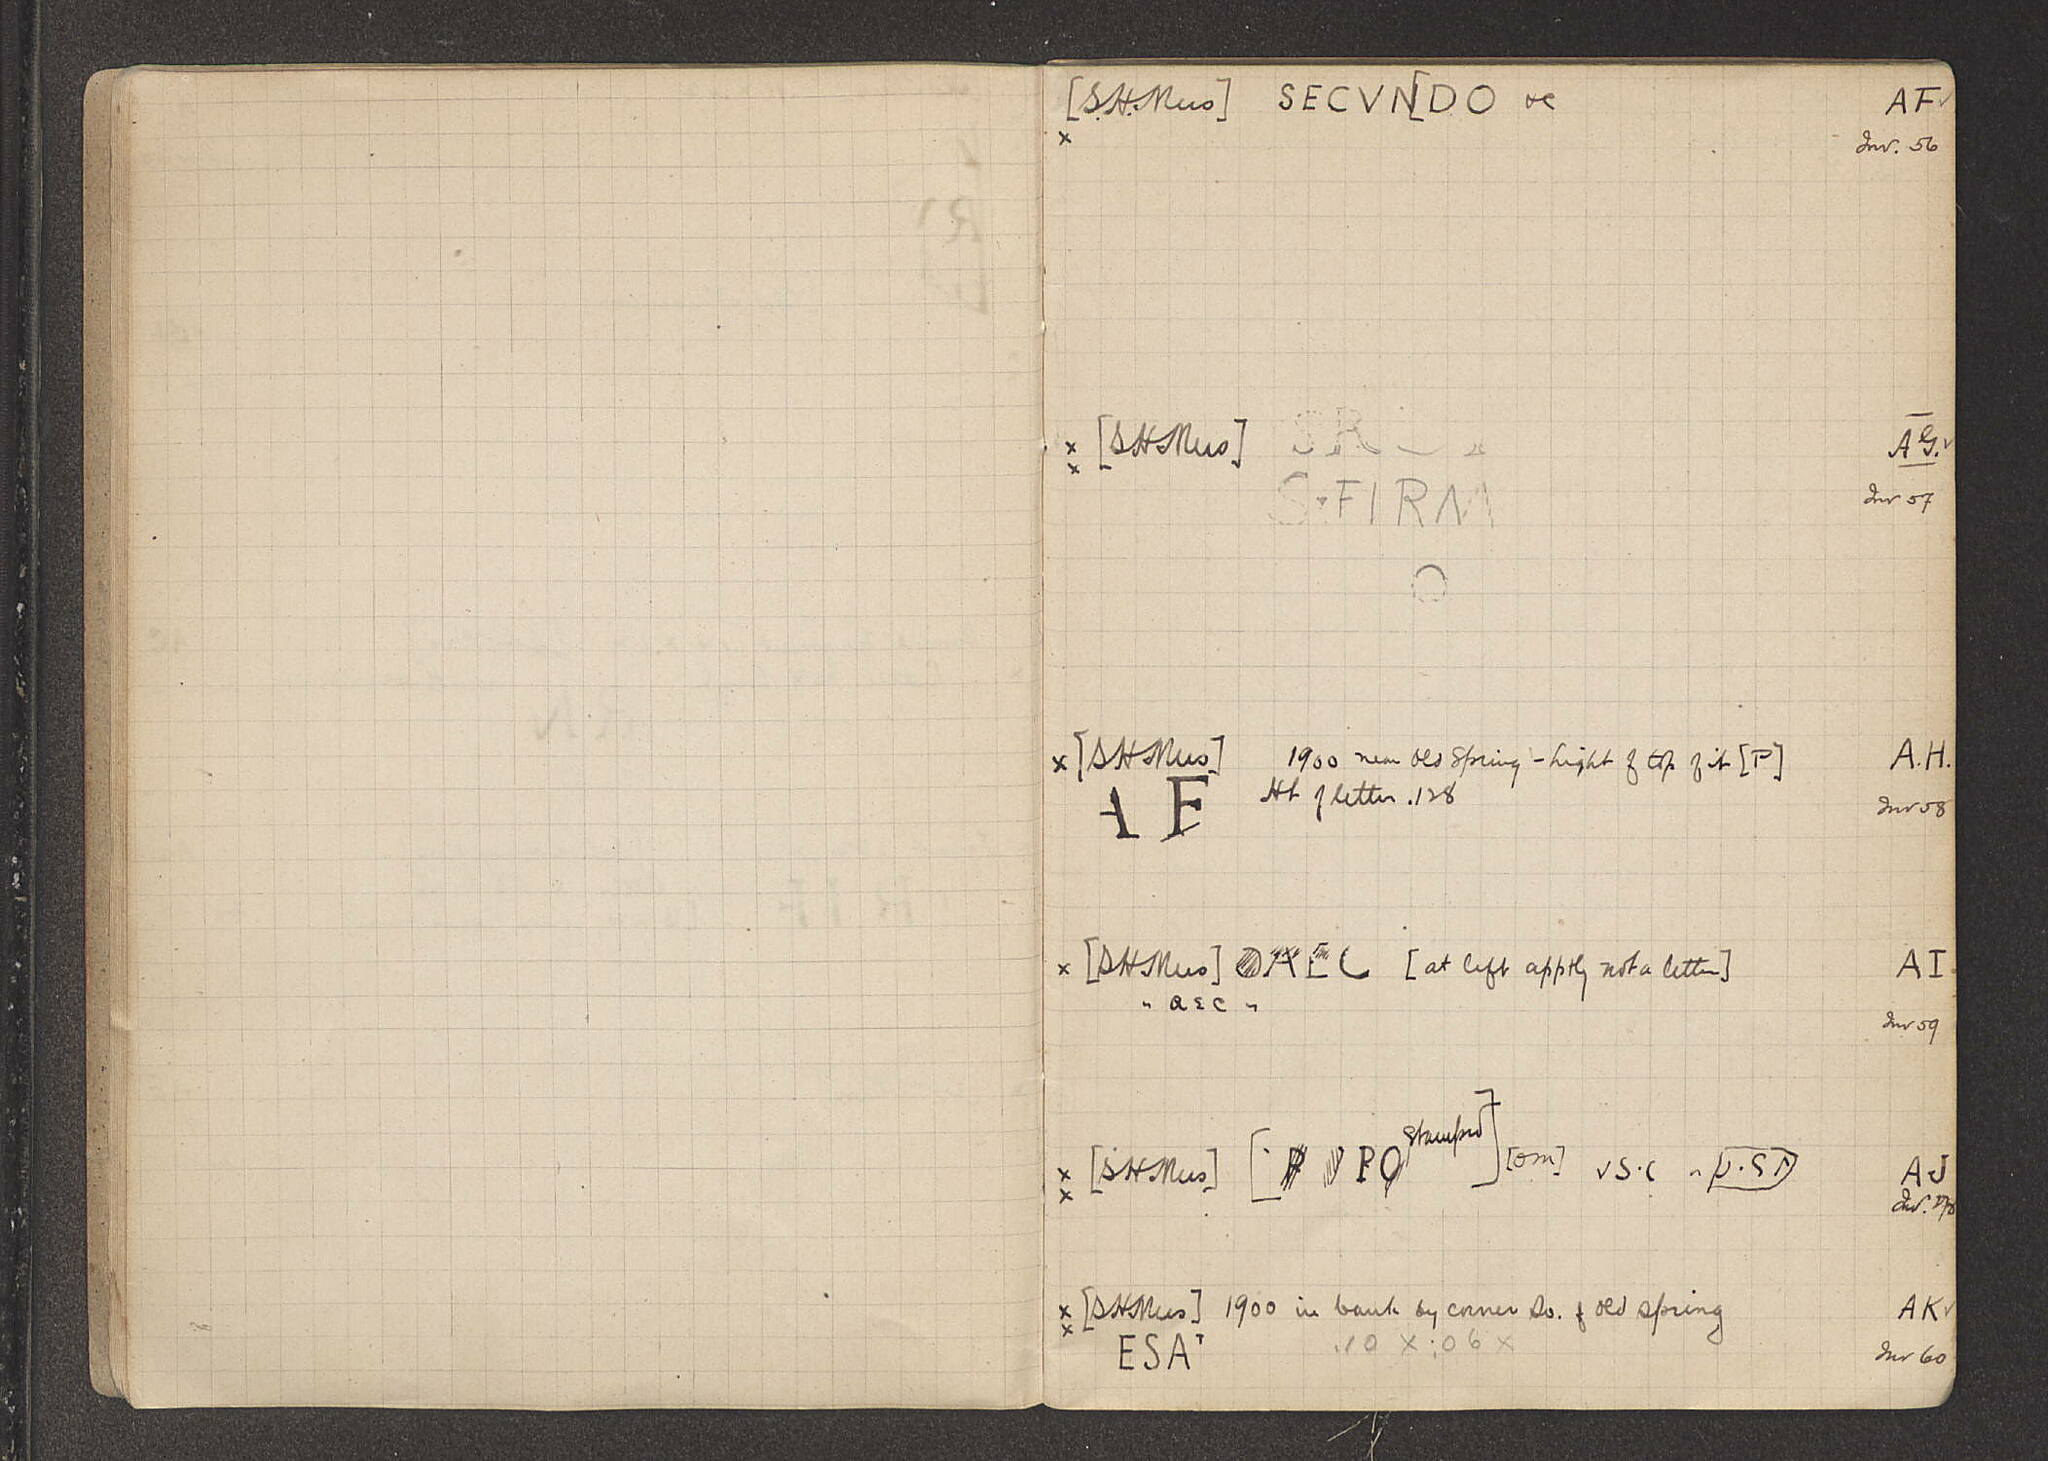 [S.H.Mus] SECVN[DO &c AF✓
x Inv. 56
x [SHMus] SR AG.✓
x S·FIRM Inv 57
x [SHMus] 1900 near old spring - hight of top of it [P] A.H.
A F Ht of letter .128 Inv 58
x [SHMus] OAEC [at left apptly not a letter] AI
" aec " Inv 59
x [SHMus] PO stamped] [om] VS·C AJ
x Inv.
x [SHMus] 1900 in bank by corner So. of old spring AK✓
x ESA .10 x .06 x Inv 60